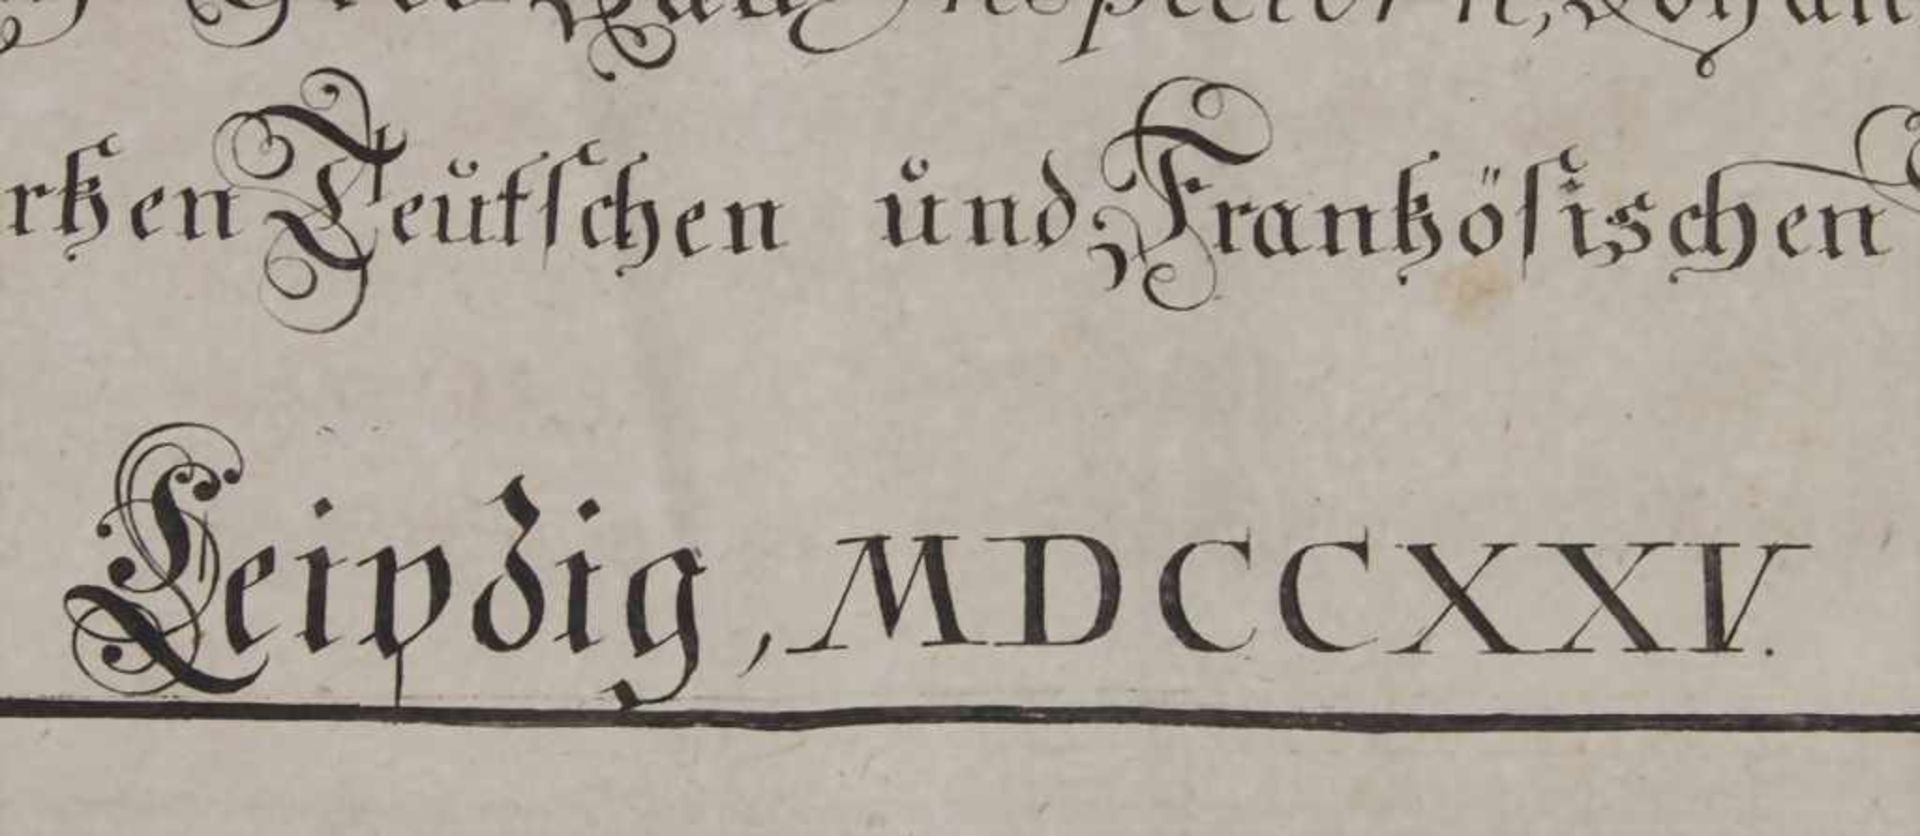 Inspectorn, Johan
rtzen Teutſchen und Frantzöſischen
Leipzig, MDCCXXV.